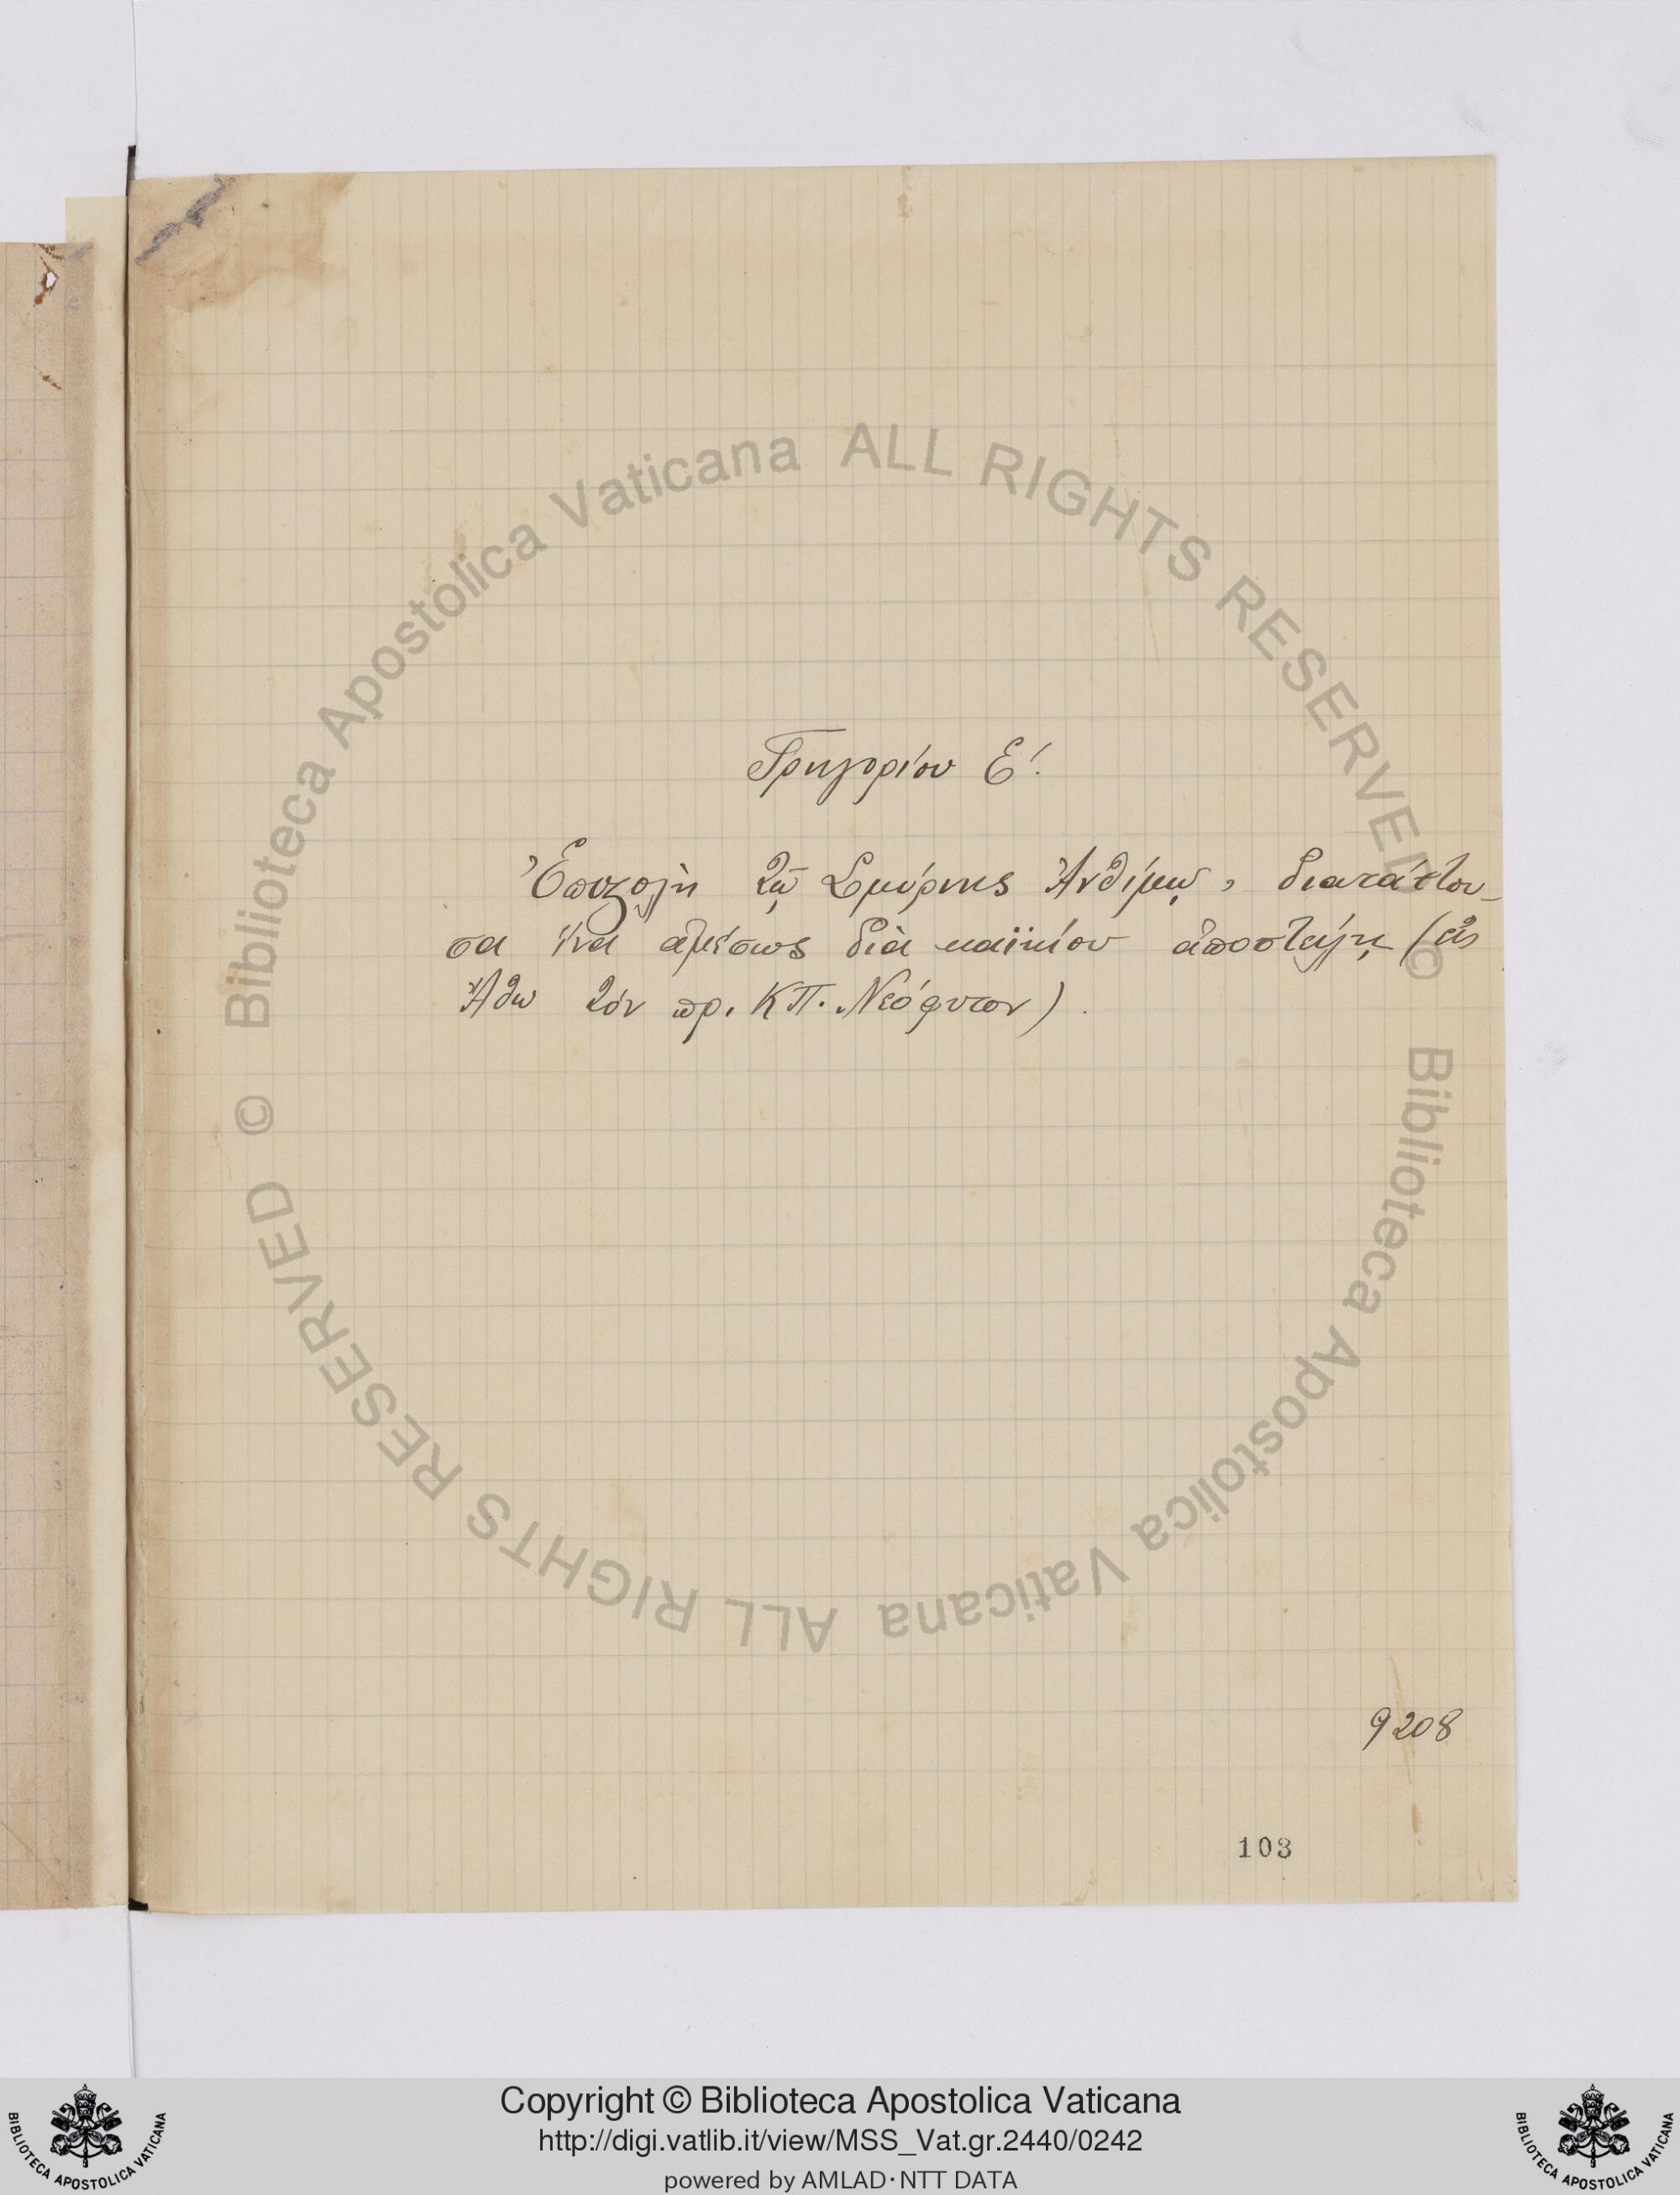 Γρηγορίου Ε΄.
Ἐπιστολὴ τῷ Σμύρνης Ἀνθίμῳ, διατάττου-
σα ἵνα ἀμέσως διὰ καϊκίου ἀποστείλῃ (εἰς
Ἄθω τὸν πρ. ΚΠ. Νεόφυτον).
9208
103
© Biblioteca Apostolica Vaticana ALL RIGHTS RESERVED
© Biblioteca Apostolica Vaticana ALL RIGHTS RESERVED
Copyright © Biblioteca Apostolica Vaticana
http://digi.vatlib.it/view/MSS_Vat.gr.2440/0242
powered by AMLAD·NTT DATA
BIBLIOTECA APOSTOLICA VATICANA
BIBLIOTECA APOSTOLICA VATICANA